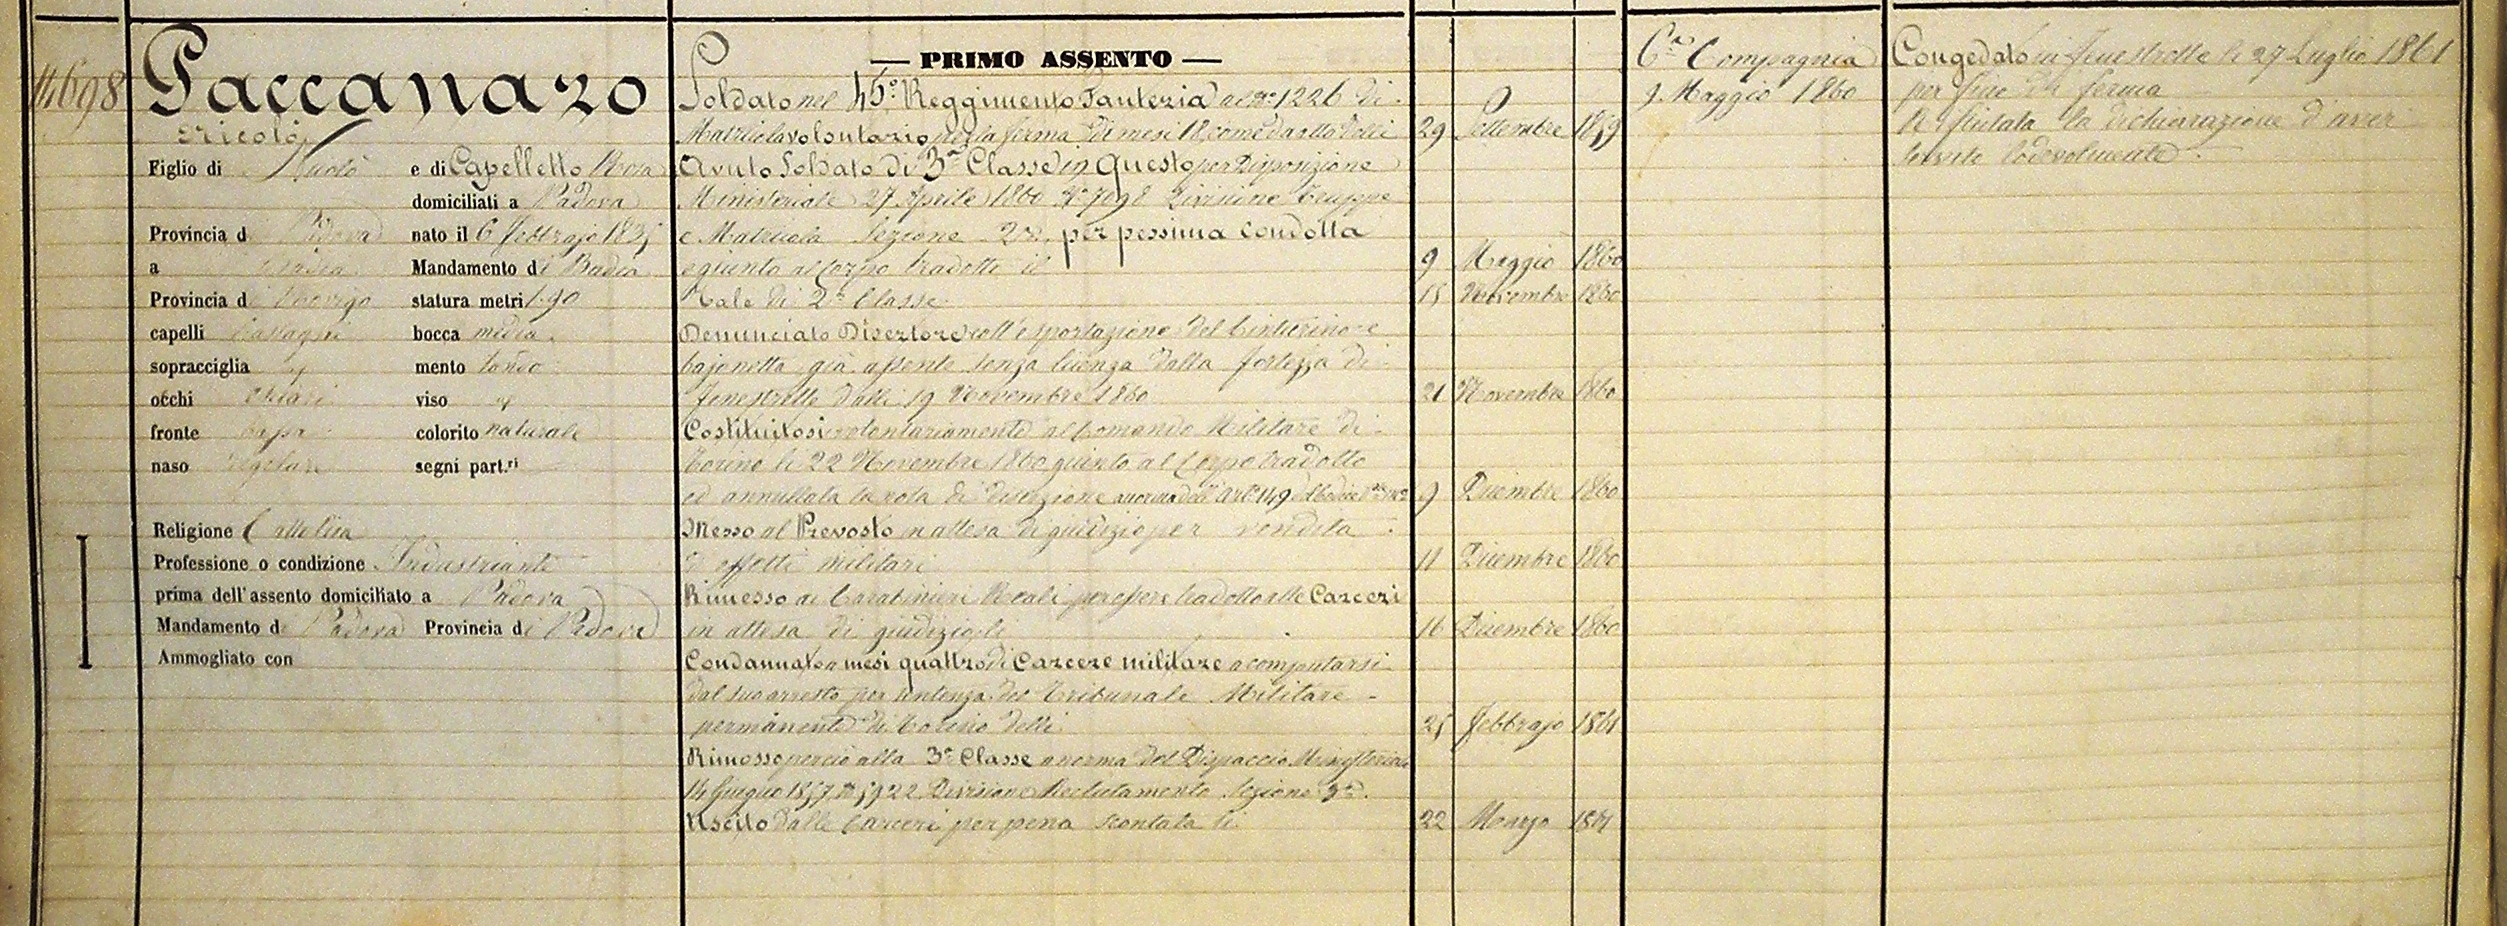 14698
Paccanaro
Nicolò
Figlio di e di Capelletto Rosa
domiciliati a Padova
Provincia di Padova nato il 6 febbrajo 1835
a Badia Mandamento di Badia
Provincia di Rovigo statura metri 1.90
capelli castagni bocca media
sopracciglia mento tondo
occhi chiari viso
fronte bassa colorito naturale
naso regolare segni part.ri
Religione Cattolica
Professione o condizione Industriante
prima dell'assento domiciliato a Padova
Mandamento di Padova Provincia di Padova
Ammogliato con
— PRIMO ASSENTO —
Soldato nel 45° Reggimento Fanteria al N° 1226 di
Matricola volontario per la ferma di mesi 18, come da atto delli 29 Settembre 1859
Avuto Soldato di 3a Classe in questo per Disposizione
Ministeriale 27 Aprile 1860 N° 7098 Divisione Truppe
e Matricola Sezione 2a, per pessima condotta
e giunto al Corpo tradotto il 9 Maggio 1860
Tale di 2a Classe 15 Novembre 1860
Denunciato Disertore coll'esportazione del Cinturino e
bajonetta già assente senza licenza dalla fortezza di
Fenestrelle dalli 19 Novembre 1860 21 Novembre 1860
Costituitosi volontariamente al Comando Militare di
Torino li 22 Novembre 1860 giunto al Corpo tradotto
ed annullata la nota di diserzione a norma dell' art° 149 9 Dicembre 1860
Messo al Prevosto in attesa di giudizio per vendita
d'effetti militari 11 Dicembre 1860
Rimesso ai Carabinieri Reali per essere tradotto alle Carceri
in attesa di giudizio li 16 Dicembre 1860
Condannato a mesi quattro di Carcere militare a computarsi
dal suo arresto per sentenza del Tribunale Militare
permanente di Torino delli 25 febbrajo 1861
Rimosso perciò alla 3a Classe a norma del Dispaccio Ministeriale
14 Giugno 1857 N° 5922 Divisione Reclutamento Sezione 3a.
Uscito dalle Carceri per pena scontata li 22 Marzo 1861
6a Compagnia
9 Maggio 1860
Congedato in Fenestrelle li 27 Luglio 1861
per fine di ferma
Rifiutata la dichiarazione d'aver
servito lodevolmente.